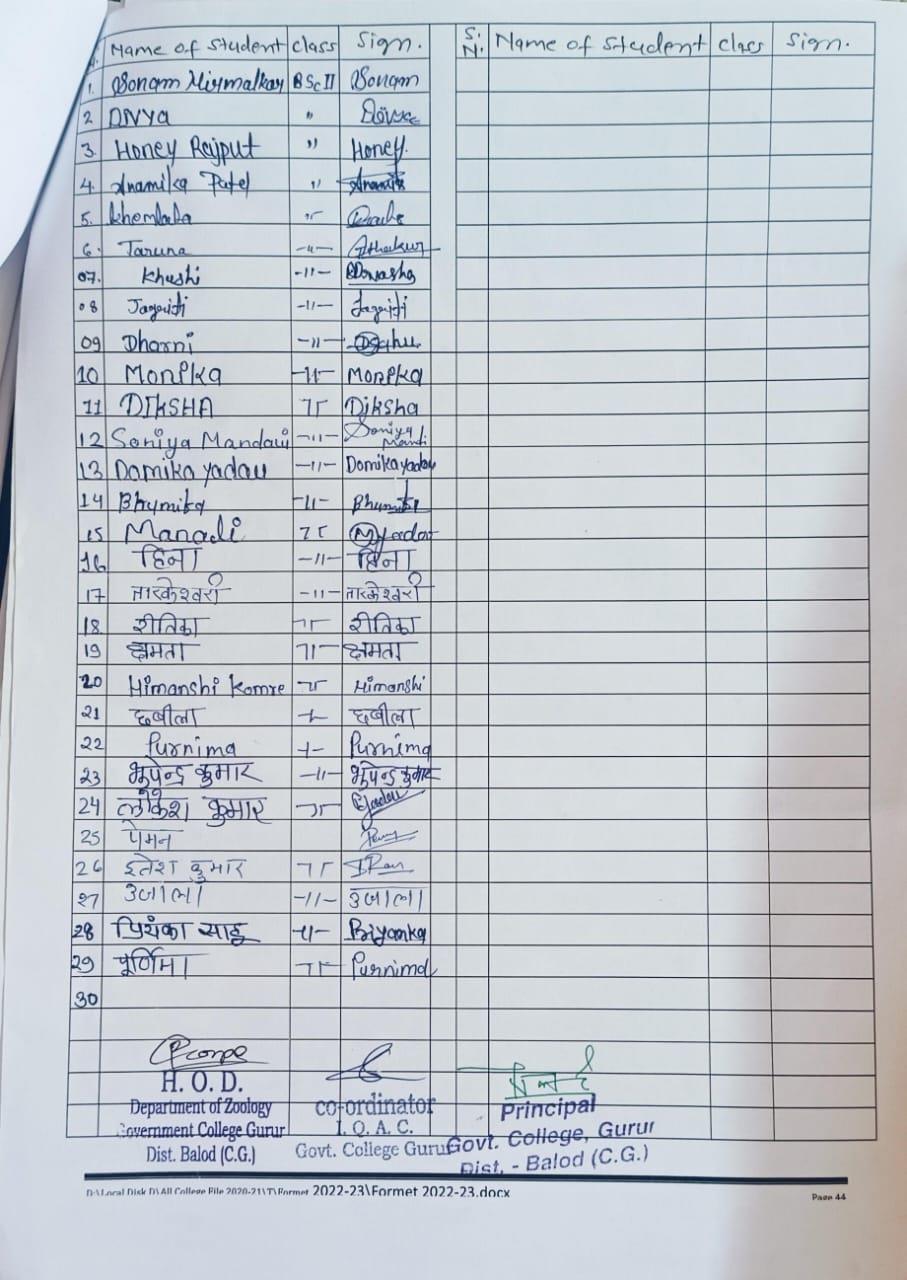 Name of Student Class Sign. S.N. Name of Student Class Sign.
1. Sonam Nirmalkar B Sc II Sonam
2 DIVYA "
3. Honey Rajput " Honey.
4. Anamika Patel " Anamika
5. Khemlata "
6. Taruna -"- Thakur
07. Khushi -"-
08 Jagriti -"- Jagriti
09 Dharni -"- Sahu
10 Monika -"- Monika
11 DIKSHA " Diksha
12 Soniya Mandavi -"- Soniya
13 Domika yadav -"- Domika yadav
14 Bhumika -"- Bhumika
15 "
16 हिना -"- हिना
17 तारकेश्वरी -"- तारकेश्वरी
18 रीतिका " रीतिका
19 क्षमता " क्षमता
20 Himanshi Komre " Himanshi
21 छबीला " छबीला
22 Purnima " Purnima
23 भुपेन्द्र कुमार -"- भुपेन्द्र कुमार
24 लोकेश कुमार "
25 पेमन
26 इतेश कुमार "
27 उजाला -"- उजाला
28 प्रियंका साहू -"- Priyanka
29 पूर्णिमा " Purnima
30
H. O. D.
Department of Zoology
Government College Gurur
Dist. Balod (C.G.)
co-ordinator
I. Q. A. C.
Govt. College Gurur
Principal
Govt. College, Gurur
Dist. - Balod (C.G.)
D:\Local Disk D\All College File 2020-21\T\Formet 2022-23\Formet 2022-23.docx
Page 44